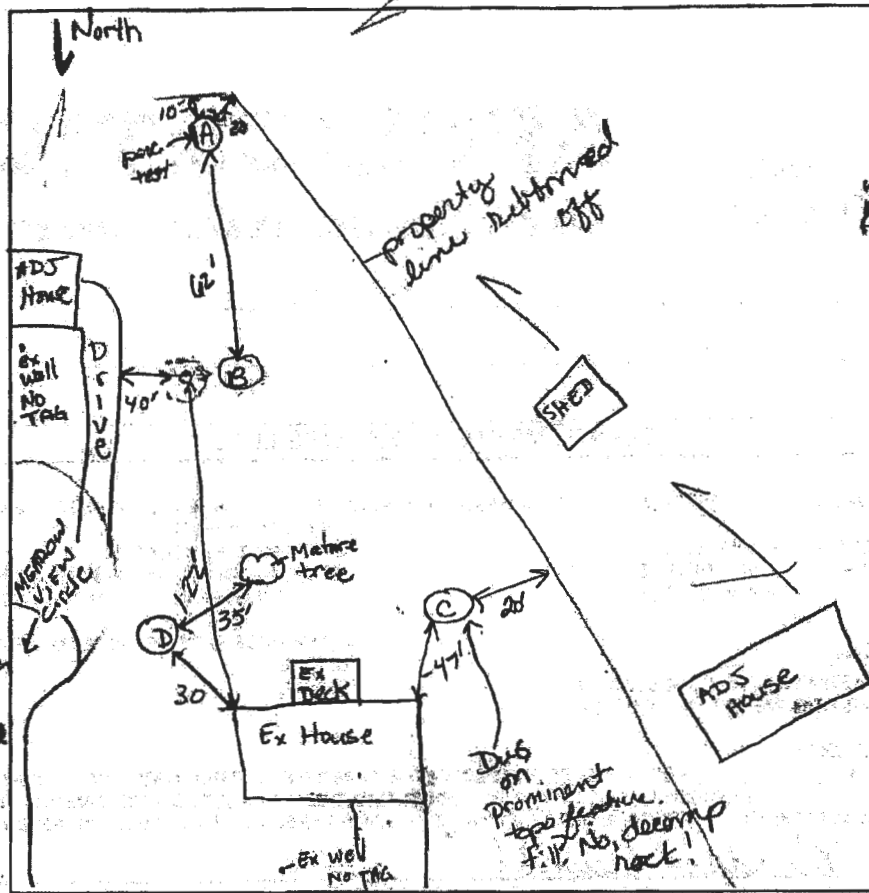 North
10'
20
A
perc
test
property
line bottomed
off
62'
ADJ
House
Drive
ex
well
NO
TAG
40'
B
SHED
MEADOW
VIEW
Circle
122'
Mature
tree
35'
D
30
C
20'
47'
Ex
Deck
Ex House
ADJ
HOUSE
DUG
on
prominent
topo feature.
fill? No, decomp
rock!
Ex Well
NO TAG